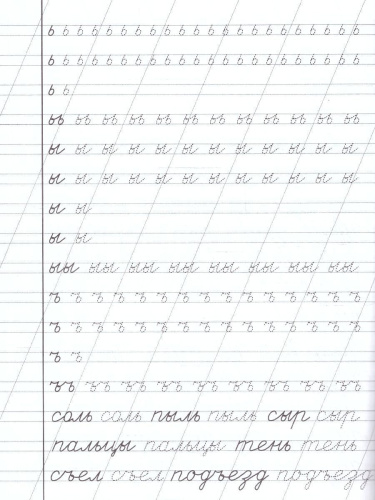 ь ь ь ь ь ь ь ь ь ь ь ь ь ь ь ь ь ь ь ь ь ь
ь ь ь ь ь ь ь ь ь ь ь ь ь ь ь ь ь ь ь ь ь ь
ь ь
ьь ьь ьь ьь ьь ьь ьь ьь ьь ьь ьь ьь
ы ы ы ы ы ы ы ы ы ы ы ы
ы ы ы ы ы ы ы ы ы ы ы ы
ы ы
ы ы
ыы ыы ыы ыы ыы ыы ыы ыы
ъ ъ ъ ъ ъ ъ ъ ъ ъ ъ ъ ъ ъ ъ ъ
ъ ъ ъ ъ ъ ъ ъ ъ ъ ъ ъ ъ ъ ъ ъ
ъ ъ
ъъ ъъ ъъ ъъ ъъ ъъ ъъ ъъ ъъ
соль соль пыль пыль сыр сыр
пальцы пальцы тень тень
съел съел подъезд подъезд